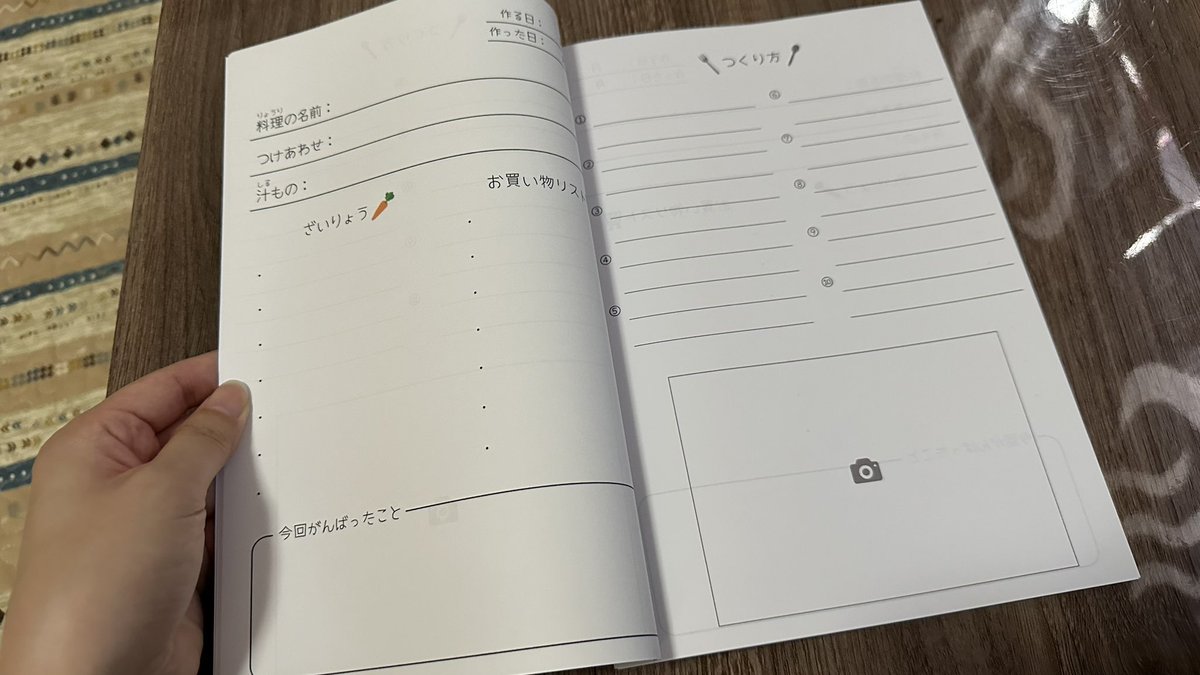 作る日：
作った日：
りょうり
料理の名前：
つけあわせ：
しる
汁もの：
ざいりょう
お買い物リスト
今回がんばったこと
つくり方
①
②
③
④
⑤
⑥
⑦
⑧
⑨
⑩